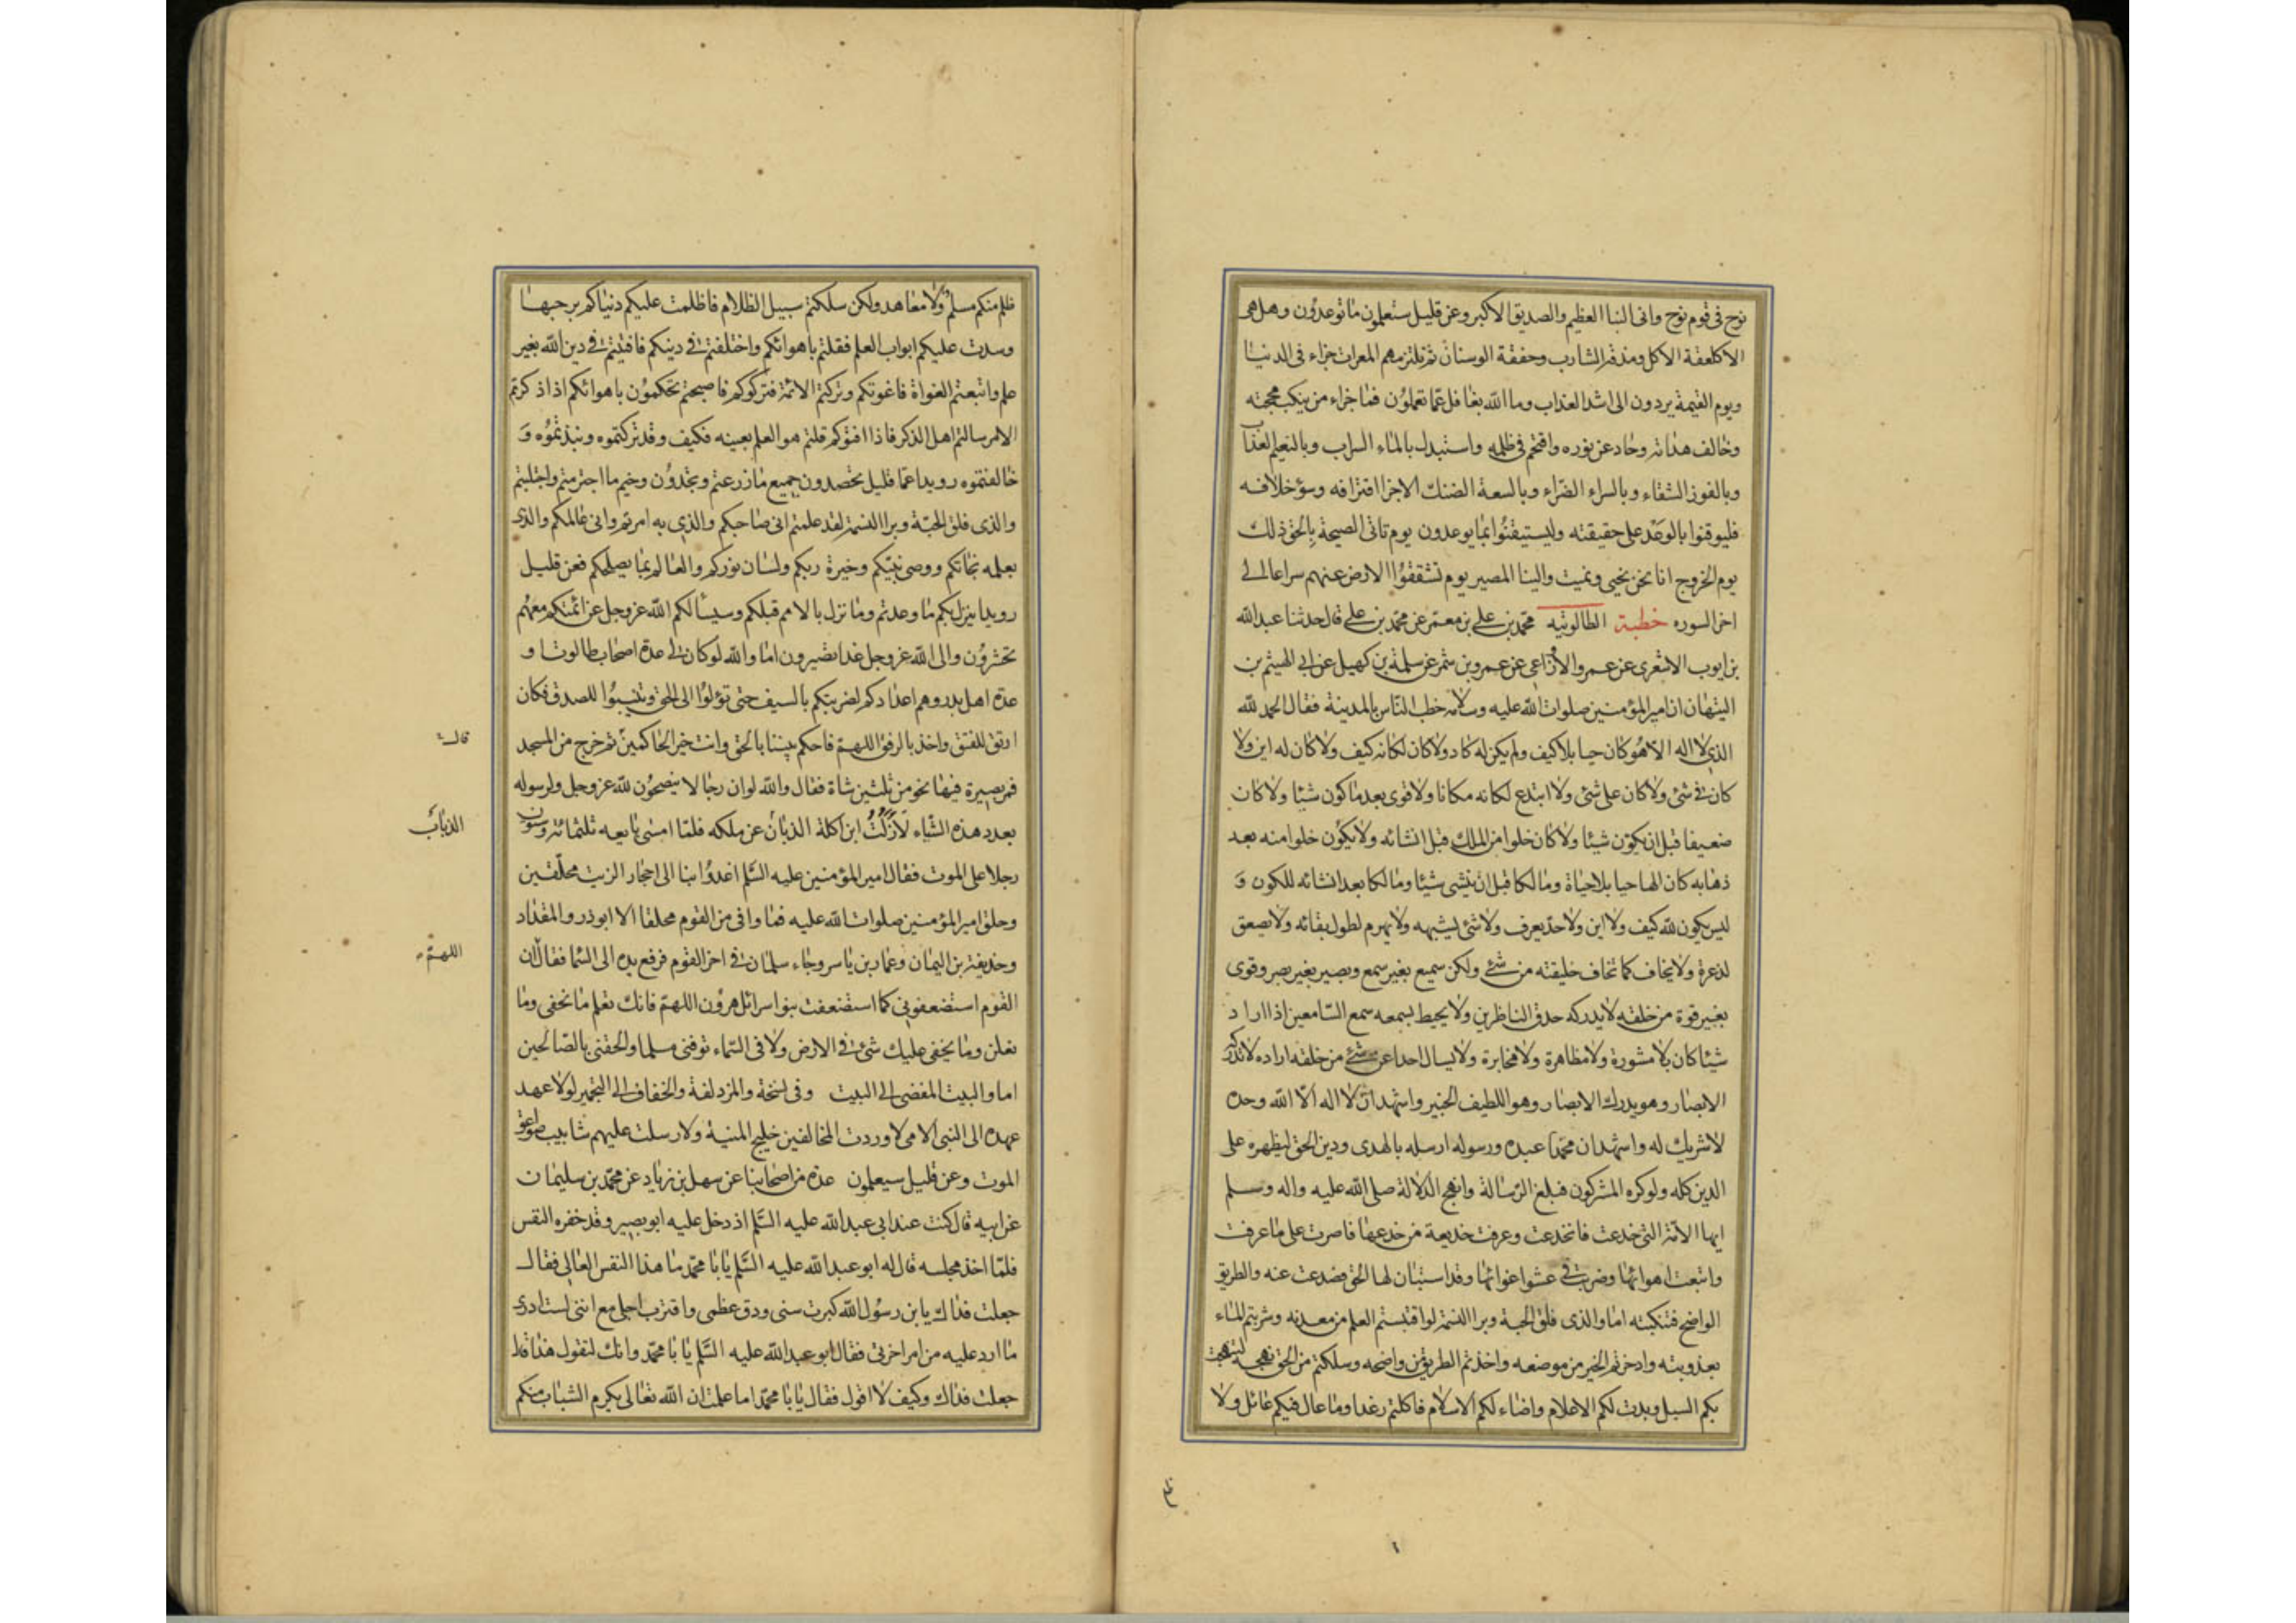 نوح فى قوم نوح وانى النبا العظيم والصديق الاكبر وعن قليل ستعلمون ما توعدون وهل هى
الا كلعقة الاكل ومذقة الشارب وخفقة الوسنان ثم تلزمهم المعرات جزاء فى الدنيا
ويوم القيمة يردون الى اشد العذاب وما الله بغافل عما تعملون فما جزاء من ينكب محجته
وخالف هداته وحاد عن نوره واقتحم فى ظلمه واستبدل بالماء السراب وبالنعيم العذاب
وبالفوز الشقاء وبالسراء الضراء وبالسعة الضنك الا جزاء اقترافه وسوء خلافه
فليوقنوا بالوعد على حقيقته وليستيقنوا بما يوعدون يوم تاتى الصيحة بالحق ذلك
يوم الخروج انا نحن نحيى ونميت والينا المصير يوم تشقق الارض عنهم سراعا الى
اخر السوره خطبة الطالوتيه محمد بن على بن معمر عن محمد بن على قال حدثنا عبد الله
بن ايوب الاشعرى عن عمرو الاوزاعى عن عمرو بن شمر عن سلمة بن كهيل عن ابى الهيثم بن
التيهان ان امير المؤمنين صلوات الله عليه وسلامه خطب الناس بالمدينة فقال الحمد لله
الذى لا اله الا هو كان حيا بلا كيف ولم يكن له كاد ولا كان لكانه كيف ولا كان له اين ولا
كان فى شئ ولا كان على شئ ولا ابتدع لكانه مكانا ولا قوى بعد ما كون شيئا ولا كان
ضعيفا قبل ان يكون شيئا ولا كان خلوا من الملك قبل انشائه ولا يكون خلوا منه بعد
ذهابه كان الها حيا بلا حياة ومالكا قبل ان ينشى شيئا ومالكا بعد انشائه للكون و
ليس يكون لله كيف ولا اين ولا حد يعرف ولا شئ يشبهه ولا يهرم لطول بقائه ولا يصعق
لذعرة ولا يخاف كما تخاف خليقته من شئ ولكن سميع بغير سمع وبصير بغير بصر وقوى
بغير قوة من خلقه لا يدركه حدق الناظرين ولا يحيط بسمعه سمع السامعين اذا اراد
شيئا كان بلا مشورة ولا مظاهرة ولا مخابرة ولا يسال احدا عن شئ من خلقه اراده لا تدركه
الابصار وهو يدرك الابصار وهو اللطيف الخبير واشهد ان لا اله الا الله وحده
لا شريك له واشهد ان محمدا عبده ورسوله ارسله بالهدى ودين الحق ليظهره على
الدين كله ولو كره المشركون فبلغ الرسالة وانهج الدلالة صلى الله عليه واله وسلم
ايها الامة التى خدعت فانخدعت وعرفت خديعة من خدعها فاصرت على ما عرفت
واتبعت اهوائها وضربت فى عشوا غوائها وقد استبان لها الحق فصدعت عنه والطريق
الواضح فتنكبته اما والذى فلق الحبة وبرا النسمة لو اقتبستم العلم من معدنه وشربتم الماء
بعذوبته وادخرتم الخير من موضعه واخذتم الطريق من واضحه وسلكتم من الحق نهجه لنهجت
بكم السبل وبدت لكم الاعلام واضاء لكم الاسلام فاكلتم رغدا وما عال فيكم عائل ولا
ظلم
ظلم منكم مسلم ولا معاهد ولكن سلكتم سبيل الظلام فاظلمت عليكم دنياكم برحبها
وسدت عليكم ابواب العلم فقلتم باهوائكم واختلفتم فى دينكم فافتيتم فى دين الله بغير
علم واتبعتم الغواة فاغوتكم وتركتم الائمة فتركوكم فاصبحتم تحكمون باهوائكم اذا ذكرتم
الامر سالتم اهل الذكر فاذا افتوكم قلتم هو العلم بعينه فكيف وقد تركتموه ونبذتموه و
خالفتموه رويدا عما قليل تحصدون جميع ما زرعتم وتجدون وخيم ما اجترمتم واجتلبتم
والذى فلق الحبة وبرا النسمة لقد علمتم انى صاحبكم والذى به امرتم وانى عالمكم والذى
بعلمه نجاتكم ووصى نبيكم وخيرة ربكم ولسان نوركم والعالم بما يصلحكم فعن قليل
رويدا ينزل بكم ما وعدتم وما نزل بالامم قبلكم وسيسالكم الله عز وجل عن ائمتكم معهم
تحشرون والى الله عز وجل غدا تصيرون اما والله لو كان لى عدة اصحاب طالوت او
عدة اهل بدر وهم اعدادكم لضربتكم بالسيف حتى تؤلوا الى الحق وتنيبوا للصدق فكان
ارتق للفتق واخذ بالرفق اللهم فاحكم بيننا بالحق وانت خير الحاكمين ثم خرج من المسجد
قال
فمر بصيرة فيها نحو من ثلثين شاة فقال والله لو ان رجالا ينصحون لله عز وجل ولرسوله
بعدد هذه الشياء لازلت ابن اكلة الذبان عن ملكه فلما امسى بايعه ثلثمائة وستون
الذباب
رجلا على الموت فقال امير المؤمنين عليه السلم اغدوا بنا الى احجار الزيت محلقين
وحلق امير المؤمنين صلوات الله عليه فما وافى من القوم محلقا الا ابو ذر والمقداد
وحذيفة بن اليمان وعمار بن ياسر وجاء سلمان فى اخر القوم فرفع يده الى السما فقال ان
اللهم
القوم استضعفونى كما استضعفت بنو اسرائل هرون اللهم فانك تعلم ما نخفى وما
نعلن وما يخفى عليك شئ فى الارض ولا فى السماء توفنى مسلما والحقنى بالصالحين
اما والبيت المفضى الى البيت وفى نسخة والمزدلفة والخفاف الى التجمير لولا عهد
عهده الى النبى الامى لاوردت المخالفين خليج المنية ولارسلت عليهم شابيب صواعق
الموت وعن قليل سيعلمون عدة من اصحابنا عن سهل بن زياد عن محمد بن سليمان
عن ابيه قال كنت عند ابى عبد الله عليه السلم اذ دخل عليه ابو بصير وقد خفره النفس
فلما اخذ مجلسه قال له ابو عبد الله عليه السلم يا با محمد ما هذا النفس العالى فقال
جعلت فداك يا بن رسول الله كبرت سنى ودق عظمى واقترب اجلى مع اننى لست ادرى
ما ارد عليه من امر اخرتى فقال ابو عبد الله عليه السلم يا با محمد وانك لتقول هذا قلت
جعلت فداك وكيف لا اقول فقال يا با محمد اما علمت ان الله تعالى يكرم الشباب منكم